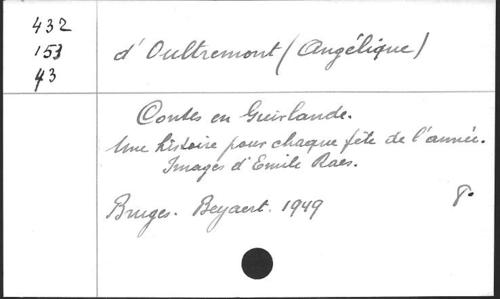 432
153
43
d'Oultremont (Angélique)
Contes en Guirlande.
Une histoire pour chaque fête de l'année.
Images d'Emile Raes.
Bruges. Beyaert. 1949
8°